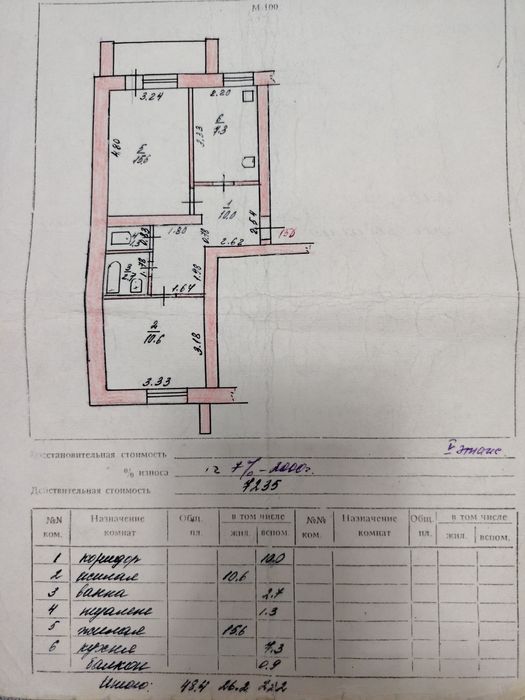 М 1:100
3.24
2.20
4.80
5
15.6
6
7.3
3.33
1
10.0
2.64
150
4
1.3
0.83
1.80
0.78
2.62
3
2.7
1.78
1.98
1.64
2
10.6
3.18
3.33
Восстановительная стоимость
V этаж
% износа
7% - 2000г.
Действительная стоимость
7235
№№ ком. Назначение комнат Общ. пл. в том числе жил. вспом. №№ ком. Назначение комнат Общ. пл. в том числе жил. вспом.
1 коридор 10.0
2 жилая 10.6
3 ванна 2.7
4 туалет 1.3
5 жилая 15.6
6 кухня 7.3
балкон 0.9
Итого: 48.4 26.2 22.2